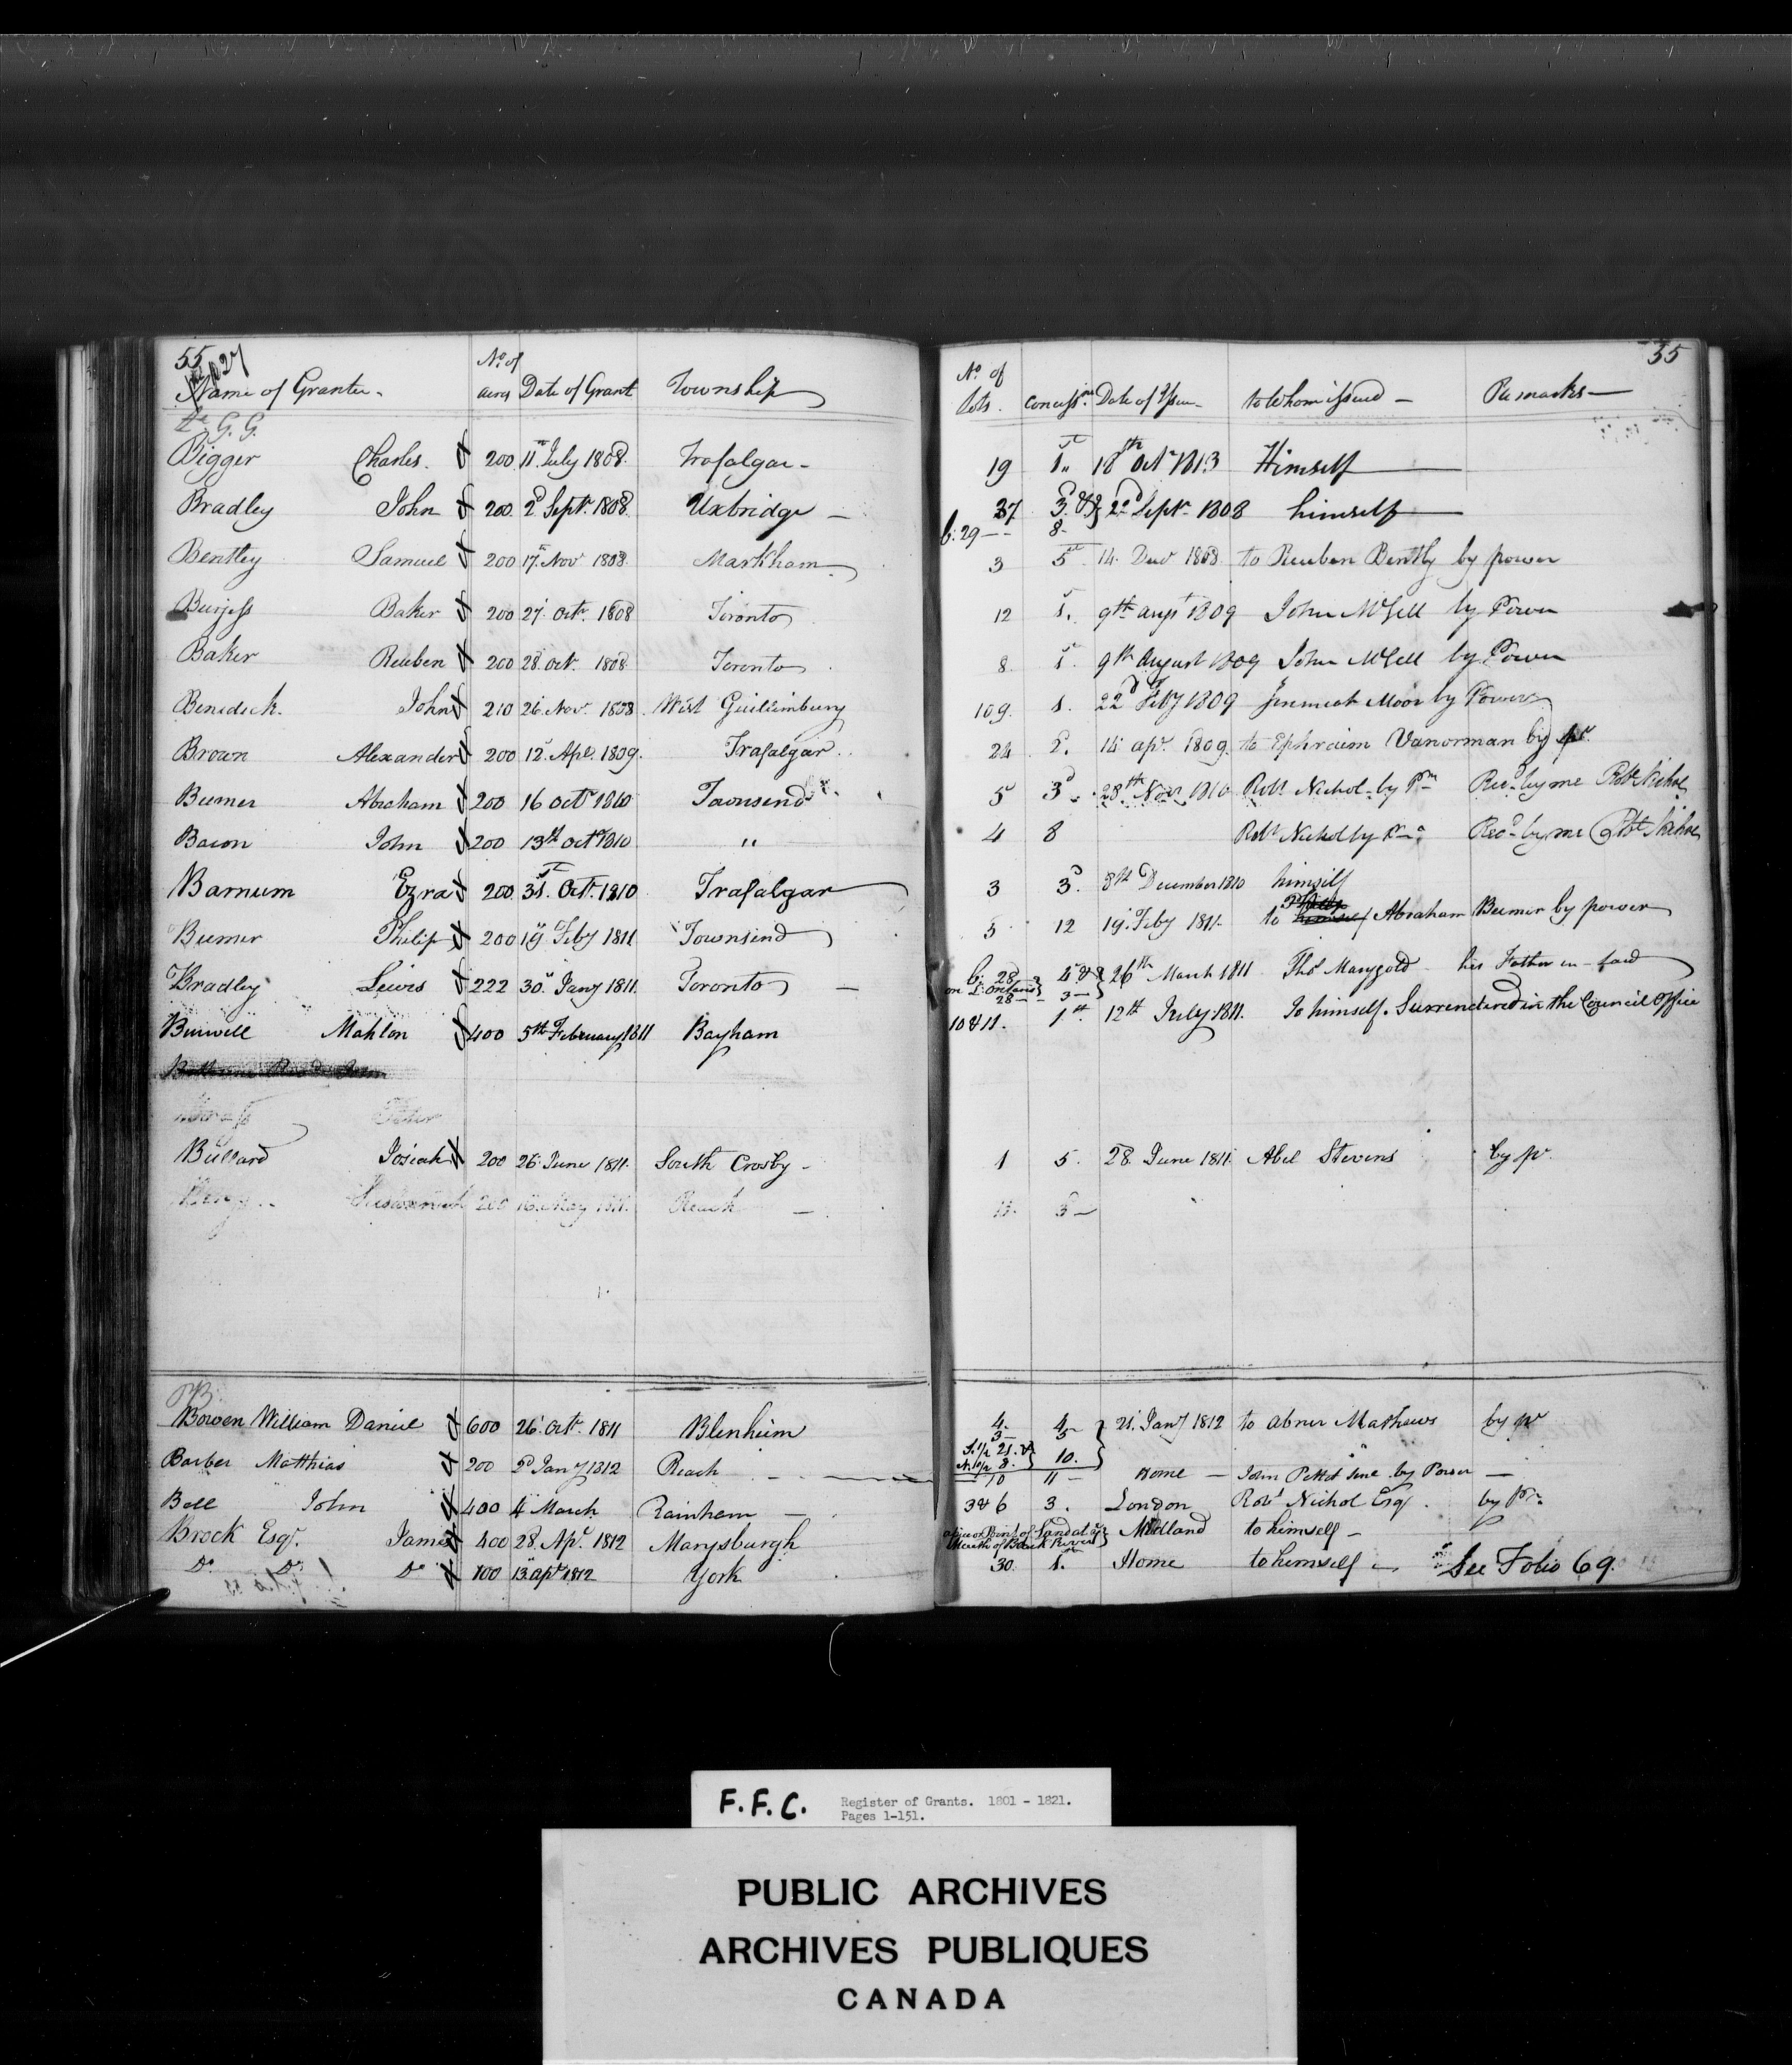 55 55
Name of Grantee. No. of acres Date of Grant Township No. of Lots. Concessns. Date of Issue to whom issued — Remarks —
G. G.
Bigger Charles. 200 11th July 1808. Trafalgar - 19 1st 18th Octr 1813 Himself
Bradley John 200. 2d Septr. 1808 Uxbridge — 27 3d & 22d Septr. 1808 himself
b: 29 — 8
Bentley Samuel 200 17th Nov 1808. Markham 3 5 14. Decr 1808 to Reuben Bently by power
Burjess Baker 200 27. Octr. 1808 Toronto 12 1. 9th augt 1809 John McGill by Power
Baker Reuben 200 28. octr. 1808 Toronto 8. 1. 9th August 1809 John McGill by Power
Benedick. John 210 26. Nov. 1808 West Guillimbury 109. 1. 22d Feby 1809 Jeremiah Moor by Power
Brown Alexander 200 12. Apl. 1809. Trafalgar 24 2. 14 apr. 1809. to Ephraim Vanorman by pr.
Beemer Abraham 200 16 octr 1810 Townsend 5 3d. 28th Novr 1810 Robt Nichol by Pr Recd. by me Robt Nichol
Bacon John 200 13th octr 1810 " 4 8 Robt Nichol by Pr Recd. by me Robt Nichol
Barnum Ezra 200 31st. Octr. 1810 Trafalgar 3 3d. 8th December 1810 himself
Beemer Philip 200 19 Feby 1811 Townsend 5 12 19. Feby 1811. to himself Abraham Beemer by power
Bradley Lewis 222 30. Jany 1811. Toronto — b. 28 4. & 26th March 1811 Thos Marygold his Father in-law
on L: Ontario 28 — 3 —
Burwell Mahlon 400 5th February 1811 Bayham 10 & 11. 1st. 12th July 1811. To himself. Surrendered in the Council Office
Peter
Bullard Josiah 200 26. June 1811. South Crosby - 1 5. 28. June 1811 Abel Stevens by pr.
200 16. May 1811. Reach — 3 —
Bowen William Daniel 600 26. Octr. 1811 Blenheim 4. 4 21. Jany 1812 to abner Mathews by pr
3 — 5
S. 1/2 21. & N. 1/2 8. 10.
Barber Matthias 200 2d Jany 1812 Reach 10 11 — Home — John Pettit Senr. by Power —
Bell John 400 4 March Rainham — 3 & 6 3. London Robt Nichol Esqr. by Pr.
Brock Esqr. James 400 28. Apr. 1812 Marysburgh a piece or Point of Land at ye Mouth of Black River Midland to himself —
Do. Do. Do 100 13. apr 1812 York 30. 1. Home to himself — See Folio 69.
F.F.C. Register of Grants. 1801 - 1821.
Pages 1-151.
PUBLIC ARCHIVES
ARCHIVES PUBLIQUES
CANADA